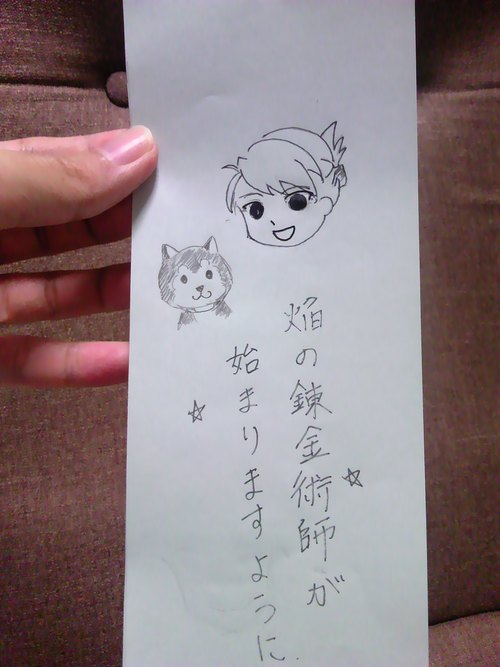 焔の錬金術師が
始まりますように